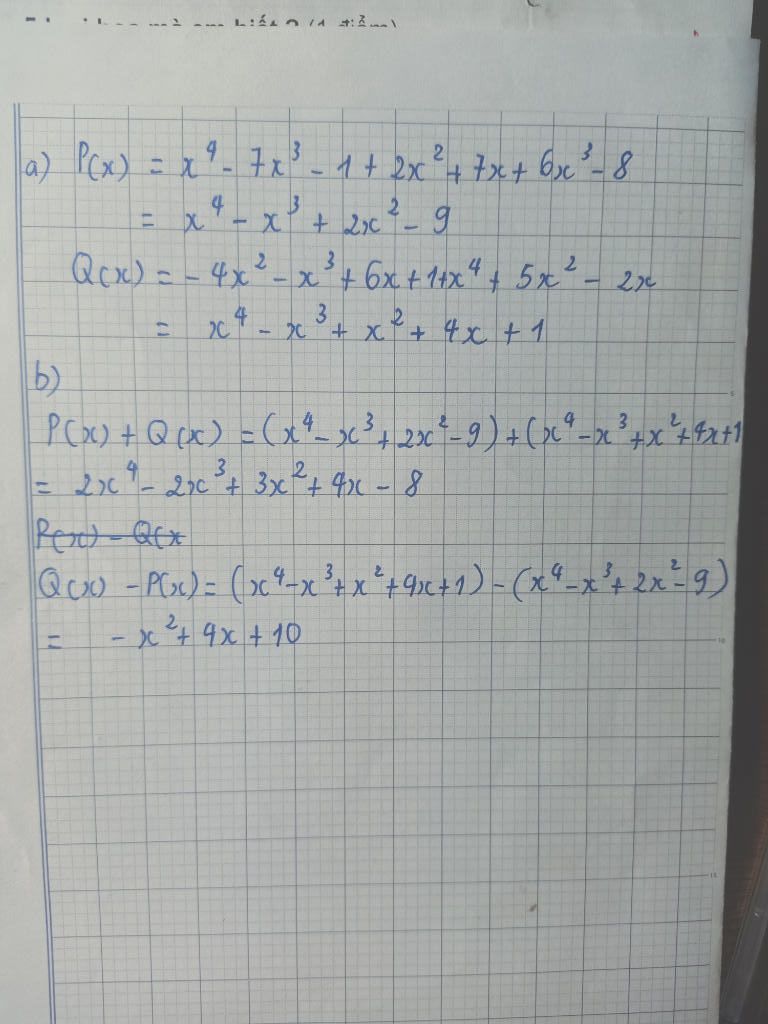 a) P(x) = x⁴ - 7x³ - 1 + 2x² + 7x + 6x³ - 8
= x⁴ - x³ + 2x² - 9
Q(x) = - 4x² - x³ + 6x + 1 + x⁴ + 5x² - 2x
= x⁴ - x³ + x² + 4x + 1
b)
P(x) + Q(x) = (x⁴ - x³ + 2x² - 9) + (x⁴ - x³ + x² + 4x + 1
= 2x⁴ - 2x³ + 3x² + 4x - 8
P(x) - Q(x
Q(x) - P(x) = (x⁴ - x³ + x² + 4x + 1) - (x⁴ - x³ + 2x² - 9)
= - x² + 4x + 10